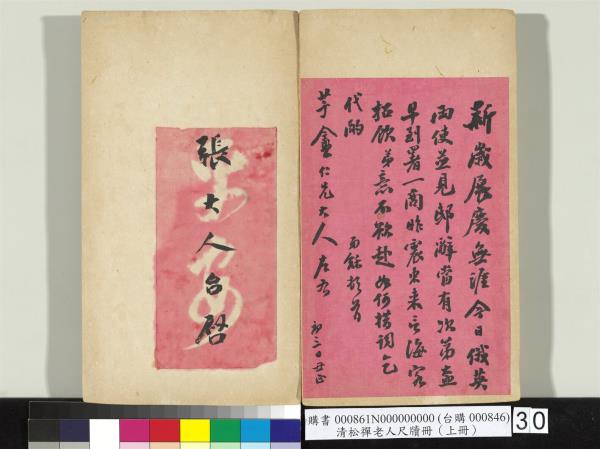 新歲展慶無涯今日俄英
兩使並見邸辭當有次第盍
早到署一商昨震東来言海客
招飲弟意不欲赴如何措詞乞
代酌
龢頓首
芋盦仁兄大人左右
初三日丑正
張大人台啓
購書 000861N000000000 (台購 000846)
清松禪老人尺牘冊（上冊）
30